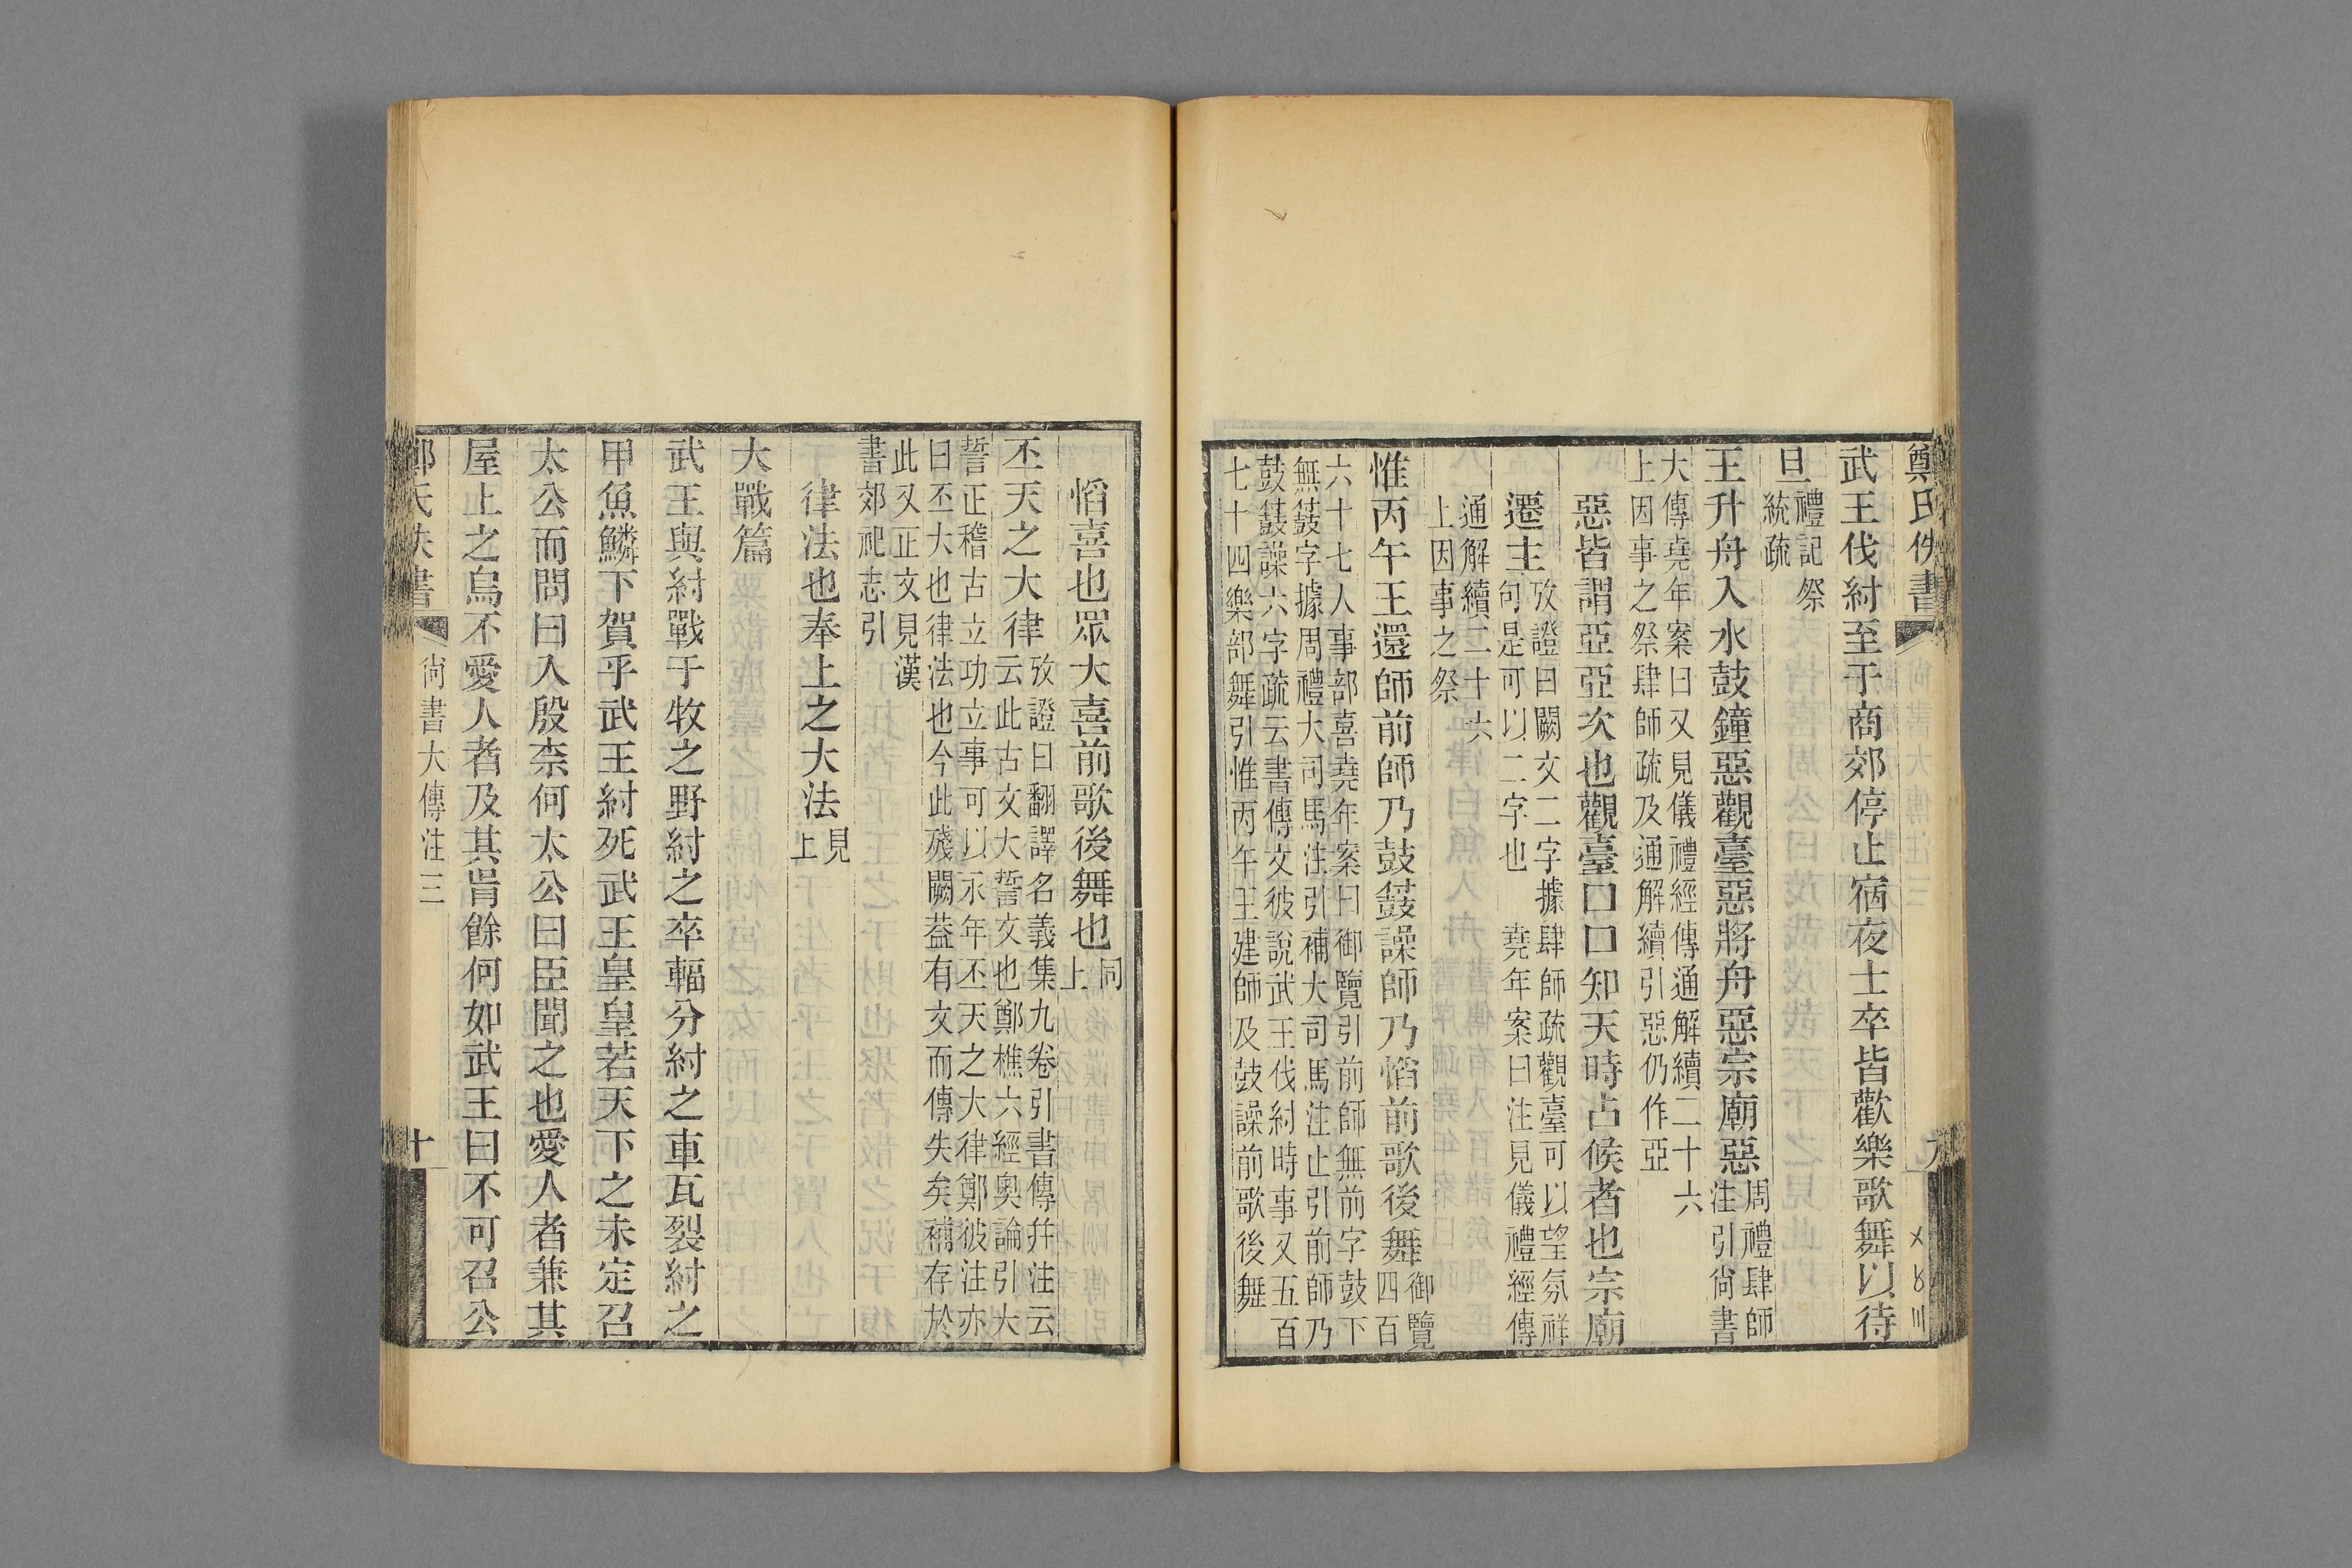 鄭氏佚書
武王伐紂至于商郊停止宿夜士卒皆歡樂歌舞以待
旦禮記祭
統疏
王升舟入水鼓鐘惡觀臺惡將舟惡宗廟惡周禮肆師
注引尚書
大傳堯年案曰又見儀禮經傳通解續二十六
上因事之祭肆師疏及通解續引惡仍作亞
惡皆謂亞亞次也觀臺口口知天時占候者也宗廟
遷主攷證曰闕文二字據肆師疏觀臺可以望氛祥
句是可以二字也 堯年案曰注見儀禮經傳
通解續二十六
上因事之祭
惟丙午王還師前師乃鼓鼓譟師乃慆前歌後舞御覽
四百
六十七人事部喜堯年案曰御覽引前師無前字鼓下
無鼓字據周禮大司馬注引補大司馬注止引前師乃
鼓鼓譟六字疏云書傳文彼說武王伐紂時事又五百
七十四樂部舞引惟丙午王建師及鼓譟前歌後舞
慆喜也眾大喜前歌後舞也同
上
丕天之大律攷證曰翻譯名義集九卷引書傳幷注云
云此古文大誓文也鄭樵六經奧論引大
誓正稽古立功立事可以永年丕天之大律鄭彼注亦
曰丕大也律法也今此殘闕葢有文而傳失矣補存於
此又正文見漢
書郊祀志引
律法也奉上之大法見
上
大戰篇
武王與紂戰于牧之野紂之卒輻分紂之車瓦裂紂之
甲魚鱗下賀乎武王紂死武王皇皇若天下之未定召
太公而問曰入殷柰何太公曰臣聞之也愛人者兼其
屋上之烏不愛人者及其胥餘何如武王曰不可召公
尚書大傳注三
十